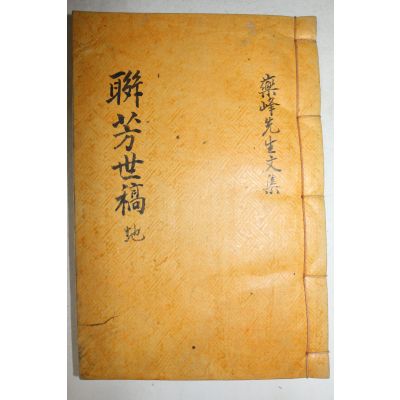 藥峰先生文集
聯芳世稿